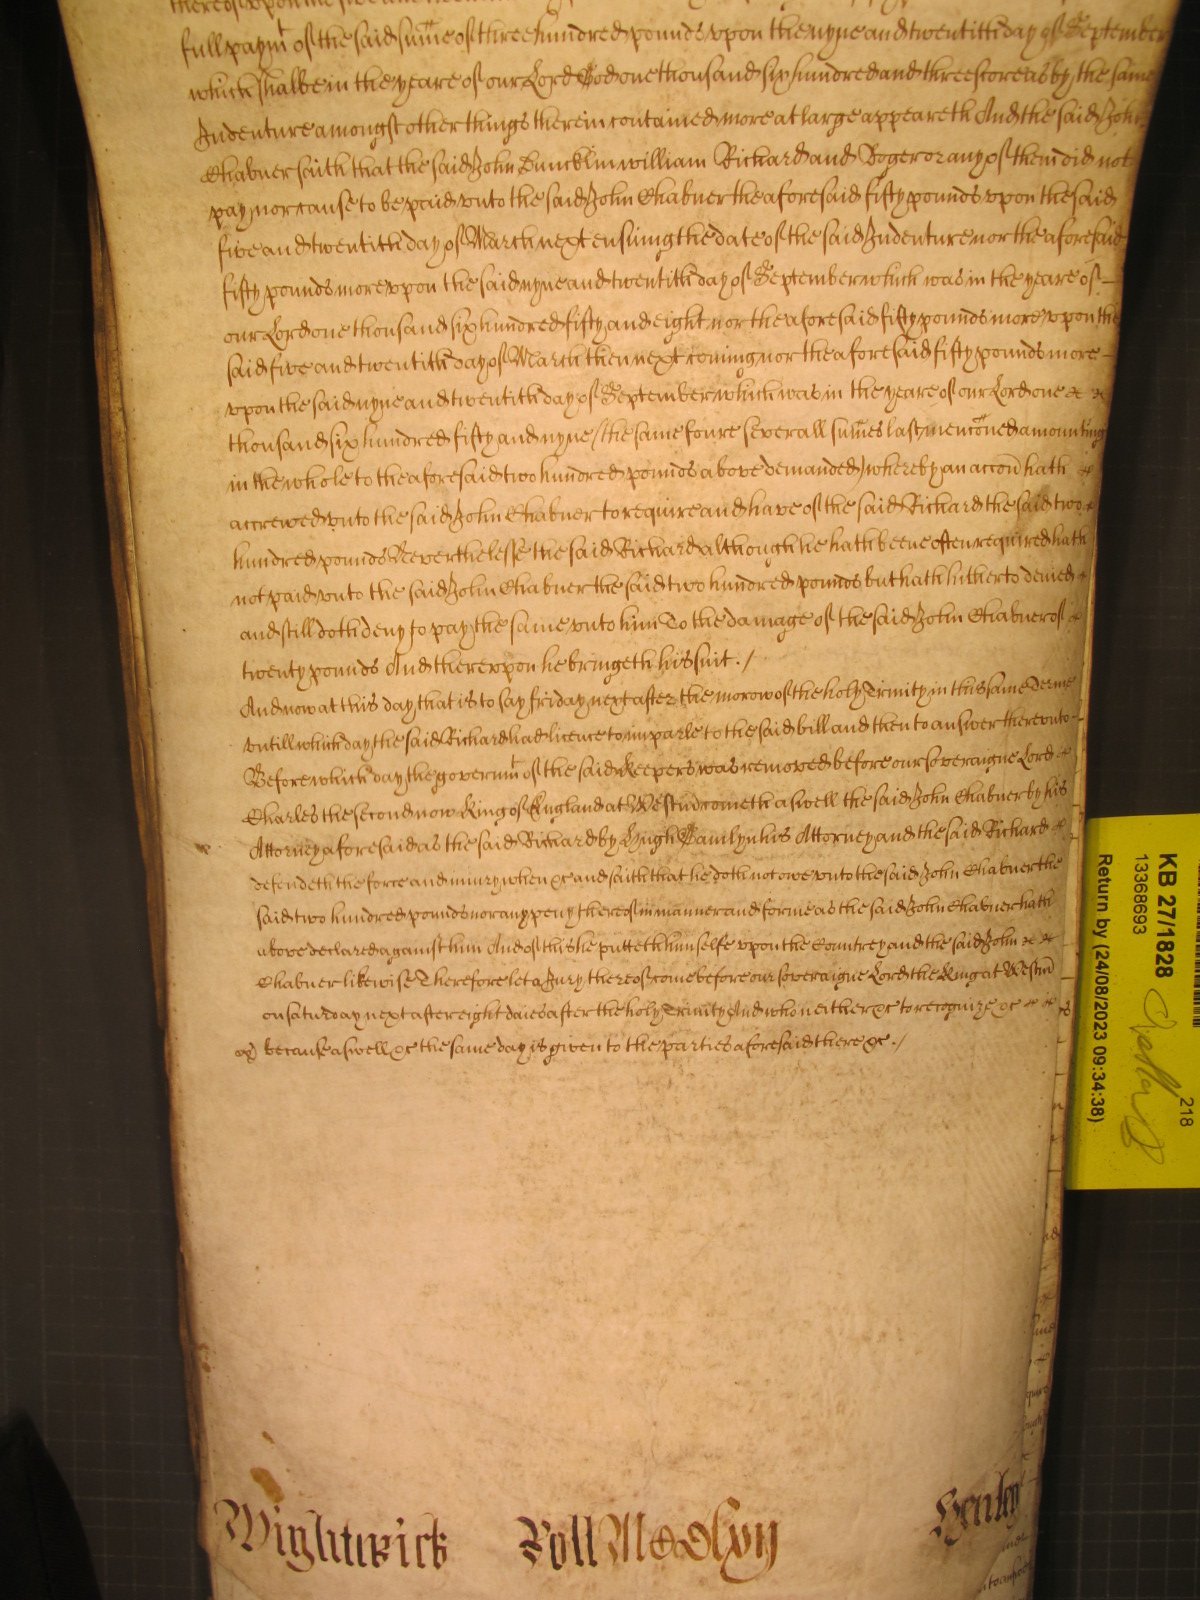 full paymt of the said sume of three hundred pounds upon the nyne and twentith day of September
which shalbe in the yeare of our Lord God one thousand six hundred and threescore as by the same
Indenture amongst other things therein contained more at large appeareth And the said John
Chabner saith that the said John Buncklin William Richard and Roger or any of them did not
pay nor cause to be paid unto the said John Chabner the aforesaid fifty pounds upon the said
five and twentith day of March next ensuing the date of the said Indenture nor the aforesaid
fifty pounds more upon the said nyne and twentith day of September which was in the yeare of
our Lord one thousand six hundred fifty and eight nor the aforesaid fifty pounds more upon the
said five and twentith day of March then next coming nor the aforesaid fifty pounds more
upon the said nyne and twentith day of September which was in the yeare of our Lord one
thousand six hundred fifty and nyne (the same foure severall sumes last mentoned amounting
in the whole to the aforesaid two hundred pounds above demanded) whereby an accon hath
accrewed unto the said John Chabner to require and have of the said Richard the said two
hundred pounds Neverthelesse the said Richard although he hath beene often required hath
not paid unto the said John Chabner the said two hundred pounds but hath hitherto denied
and still doth deny to pay the same unto him To the damage of the said John Chabner of
twenty pounds And thereupon he bringeth his suit ./
And now at this day that is to say friday next after the morow of the holy Trinity in this same Terme
untill which day the said Richard had licence to imparle to the said bill and then to answer thereunto
Before which day the governmt of the said Keepers was removed before our soveraigne Lord
Charles the second now King of England at Westm cometh aswell the said John Chabner by his
Attorney aforesaid as the said Richard by Hugh Hamlyn his Attorney and the said Richard
defendeth the force and iniury when &c and saith that he doth not owe unto the said John Chabner the
said two hundred pounds nor any peny thereof in manner and forme as the said John Chabner hath
above declared against him And of this he putteth himselfe upon the Countrey and the said John
Chabner likewise Therefore let a Jury thereof come before our soveraigne Lord the King at Westm
on saturday next after eight daies after the holy Trinity And who neither &c to recognize &c
because aswell &c the same day is given to the parties aforesaid there &c ./
Wightwick Roll MCClxvij Henley
KB 27/1828
13368693
218
Return by (24/08/2023 09:34:38)